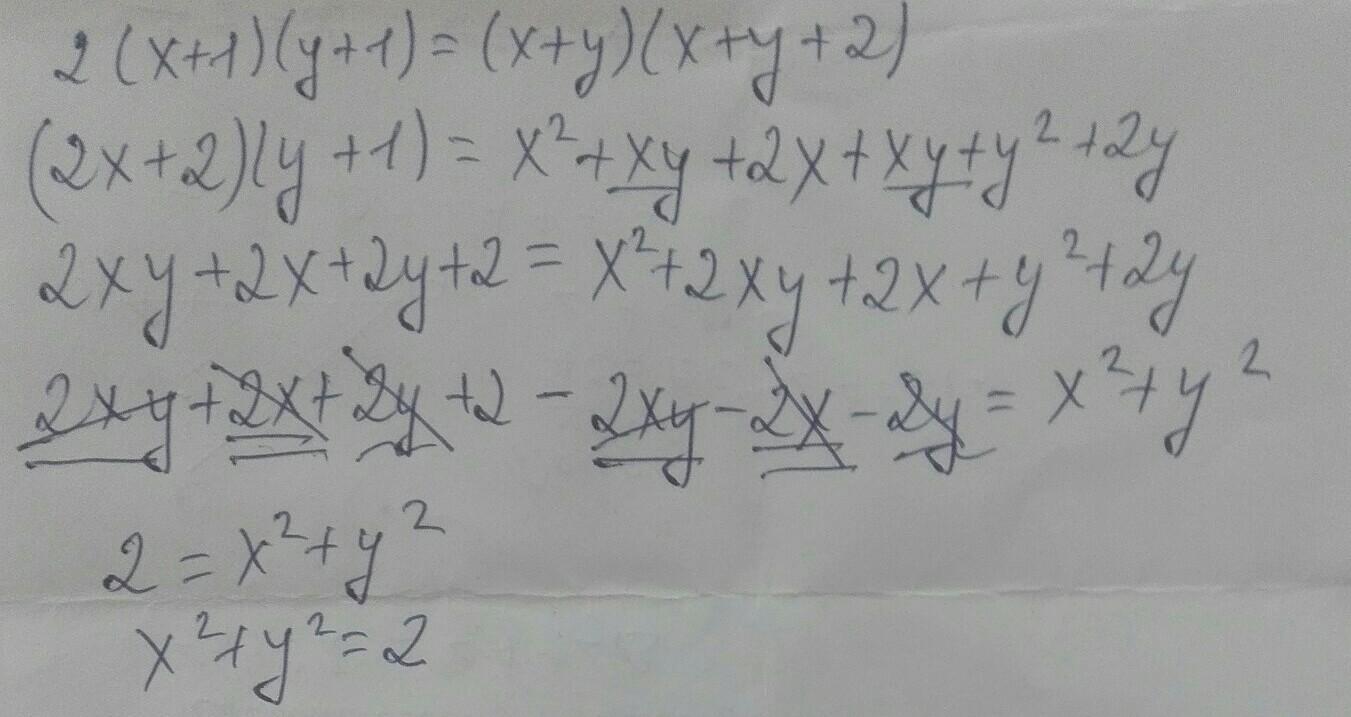 2(x+1)(y+1)=(x+y)(x+y+2)
(2x+2)(y+1)=x²+xy+2x+xy+y²+2y
2xy+2x+2y+2=x²+2xy+2x+y²+2y
2xy+2x+2y+2-2xy-2x-2y=x²+y²
2=x²+y²
x²+y²=2